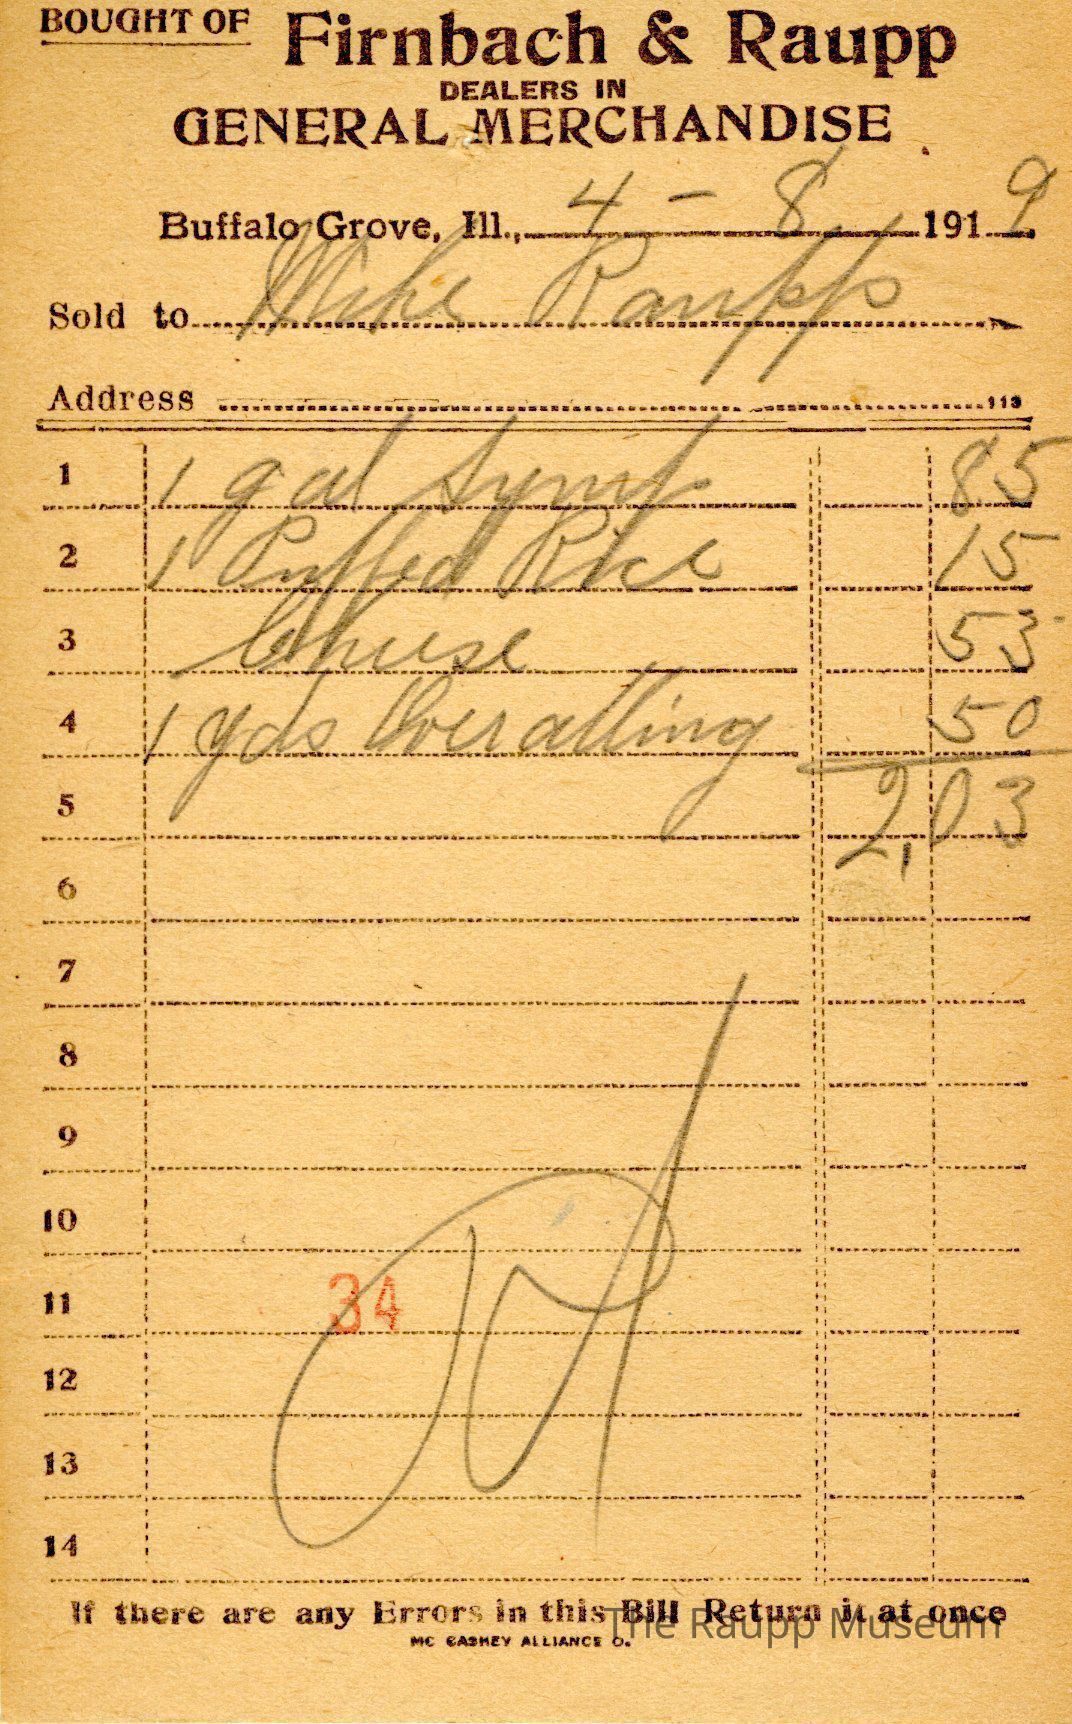 BOUGHT OF Firnbach & Raupp
DEALERS IN
GENERAL MERCHANDISE
Buffalo Grove, Ill., 4 - 8 1919
Sold to Mike Raupp
Address 113
1 1 gal Syrup 85
2 1 Puffed Rice 15
3 Cheese 53
4 1 yds Overalling 50
5 2,03
6
7
8
9
10
11 34
12
13
14
If there are any Errors in this Bill Return it at once
MC CASKEY ALLIANCE O.
The Raupp Museum